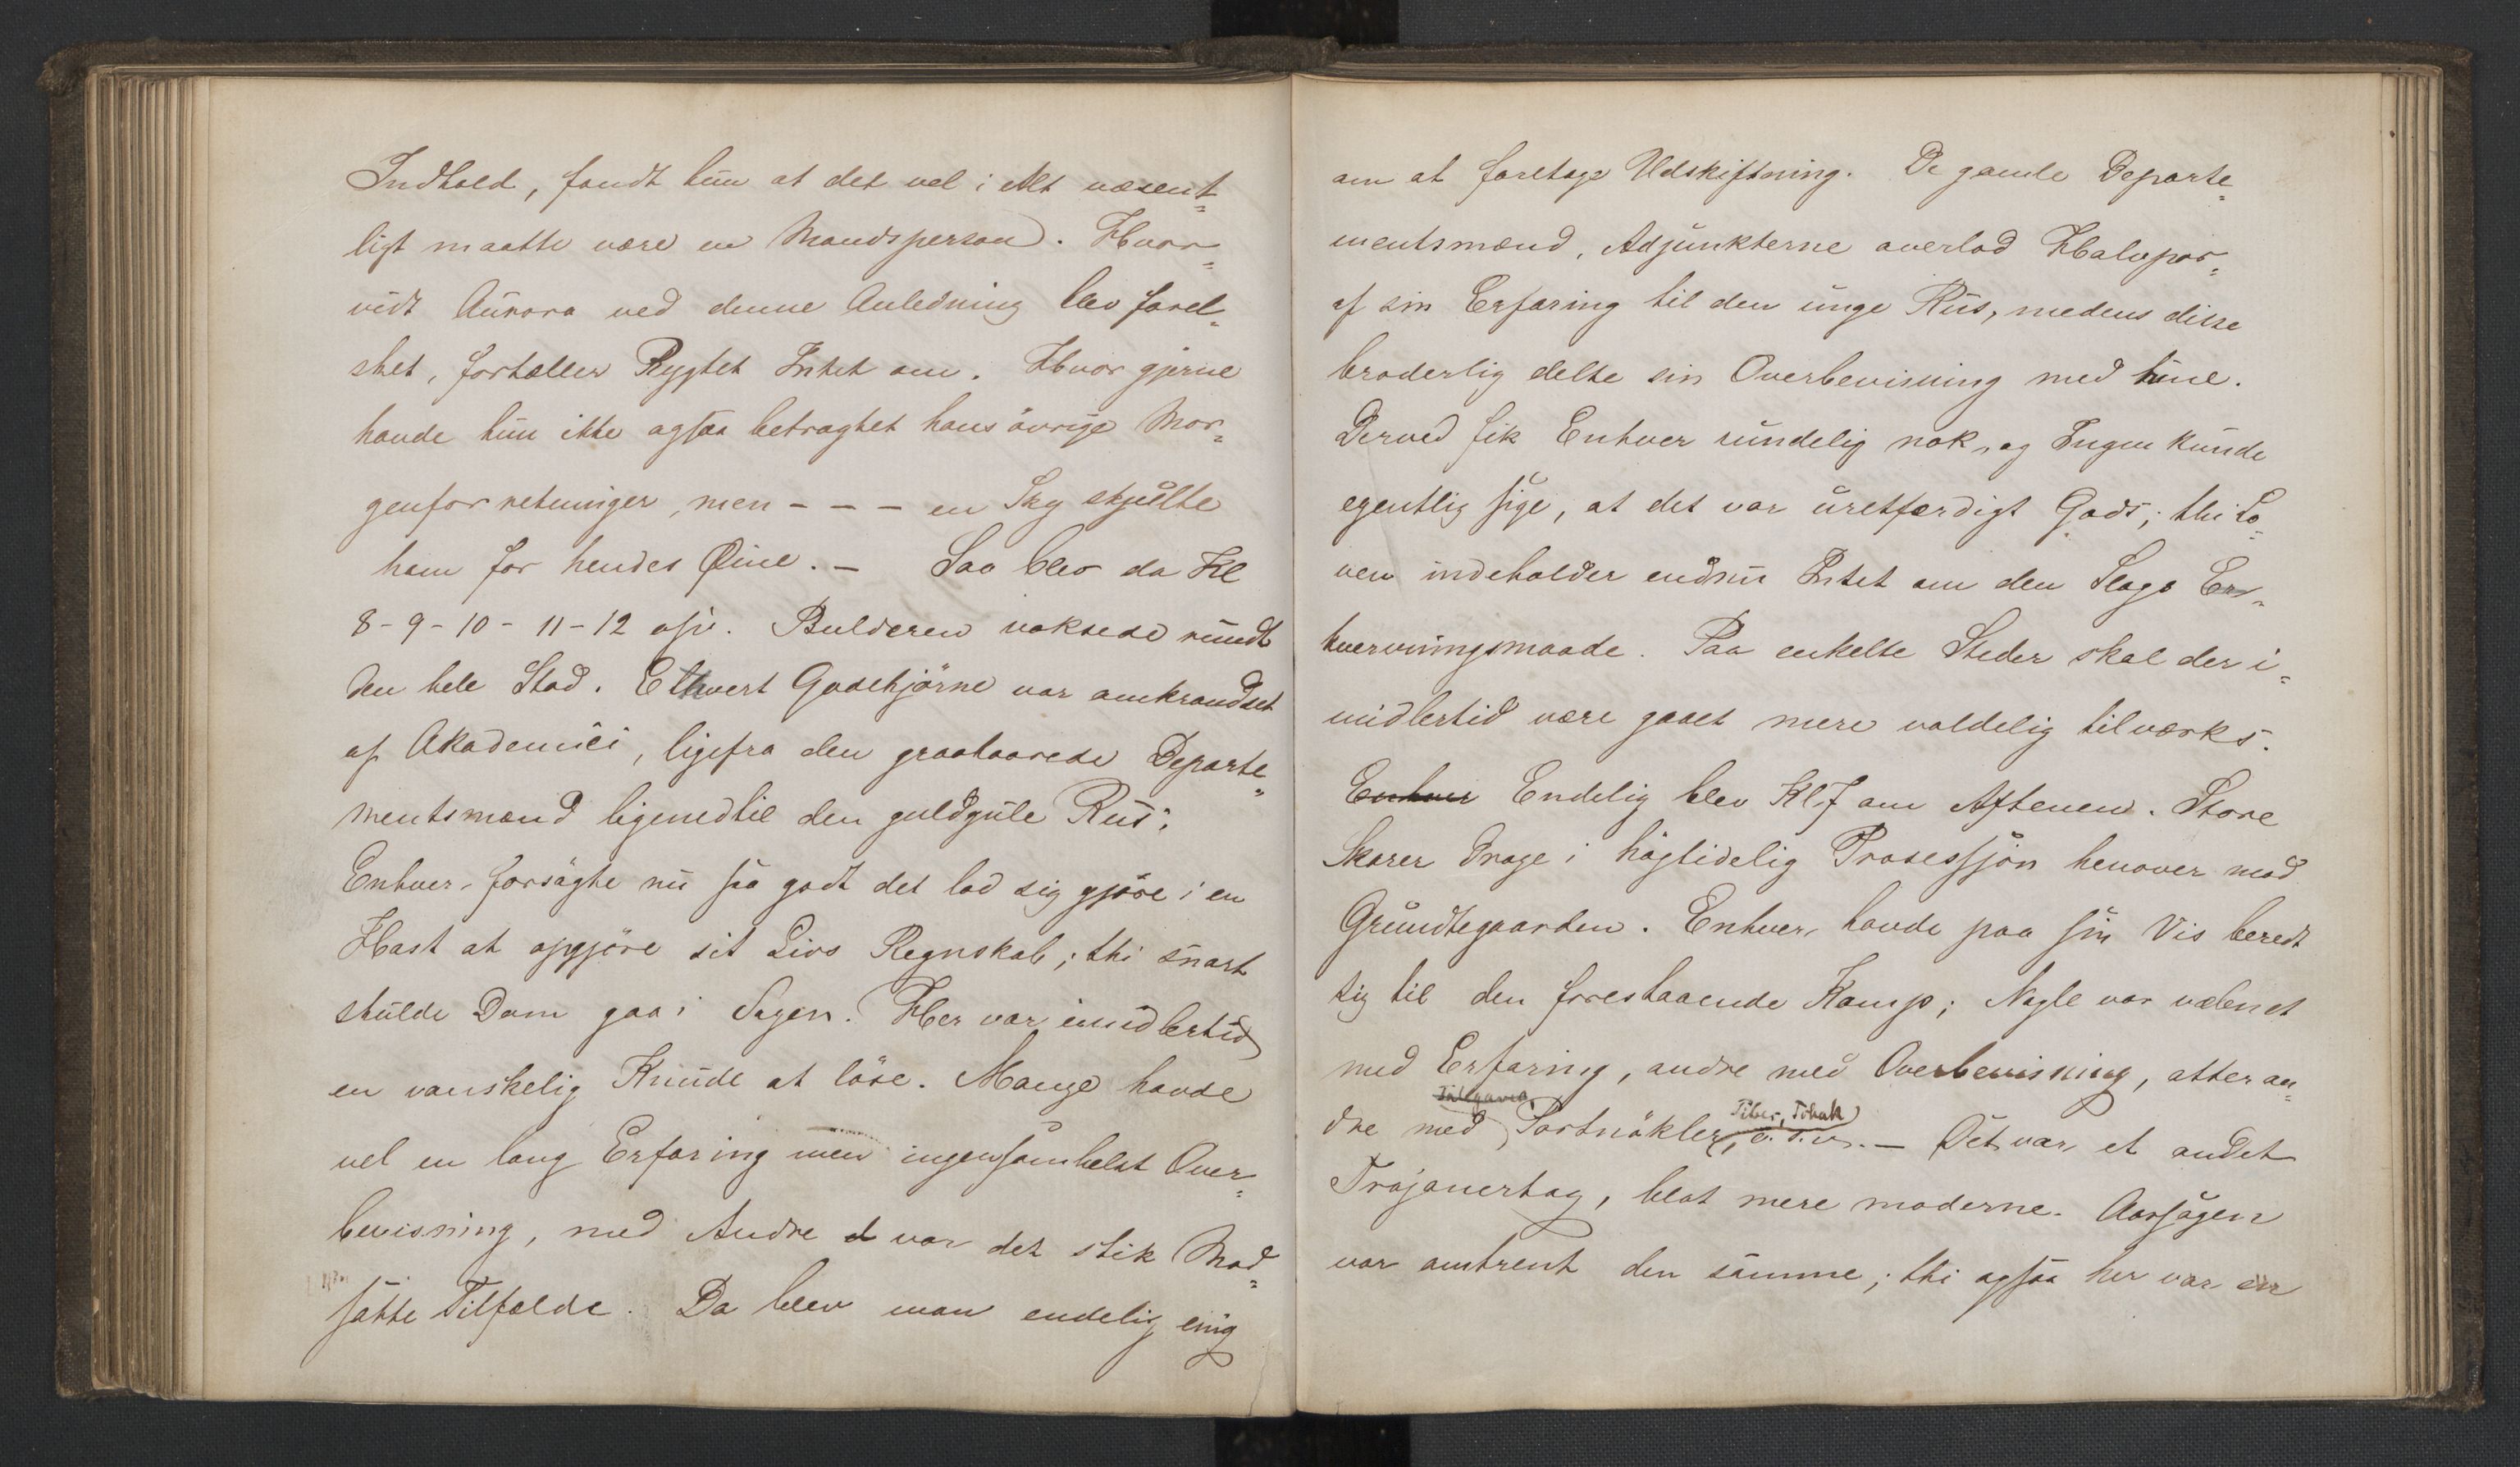 Indhold, fandt hun at det vel i Alt væsent=
ligt maatte være en Mandsperson. Hvor=
vidt Aurora ved denne Anledning blev forel=
sket, fortæller Rygtet Intet om. Hvor gjerne
havde hun ikke ogsaa betragtet hans övrige Mor=
genforretninger, men - - - en Sky skjulte
ham for hendes Öine. - Saa blev da Kl
8-9-10-11-12 osv. Bulderen voksede rundt
den hele Stad. Ethvert Gadehjörne var omkrandset
af Akademici, ligefra den graahaarede Departe=
mentsmand ligenedtil den guldgule Rus;
Enhver forsögte nu saa godt det lod sig gjöre i en
Hast at opgjöre sit Livs Regnskab; thi snart
skulde Dom gaa i Sagen. Her var imidlertid
en vanskelig Knude at löse. Mange havde
vel en lang Erfaring men ingensomhelst Over=
bevisning, med Andre var det stik Mod=
satte Tilfælde. Da blev man endelig enig
om at foretage Udskiftning. De gamle Departe=
mentsmænd, Adjunkterne overlod Halvpar=
af sin Erfaring til den unge Rus, medens disse
broderlig delte sin Overbevisning med hine.
Derved fik Enhver rundelig nok, og Ingen kunde
egentlig sige, at det var uretfærdigt Gods; thi Lo=
ven indeholder endnu Intet om den Slags Er=
hvervningsmaade. Paa enkelte Steder skal der i=
midlertid være gaaet mere voldelig tilværks.
Enhver Endelig blev Kl 7 om Aftenen. Store
Skarer drage i högtidelig Prosessjon henover mod
Grundtegaarden. Enhver havde paa sin Vis beredt
sig til den forestaaende Kamp; Nogle var væbnet
med Erfaring, andre med Overbevisning, atter an=
Piber, Tobak
dre med Portnökler, o.s.v. - Det var et andet
Trojanertog, blot mere moderne. Aarsagen
var omtrent den samme; thi ogsaa her var en